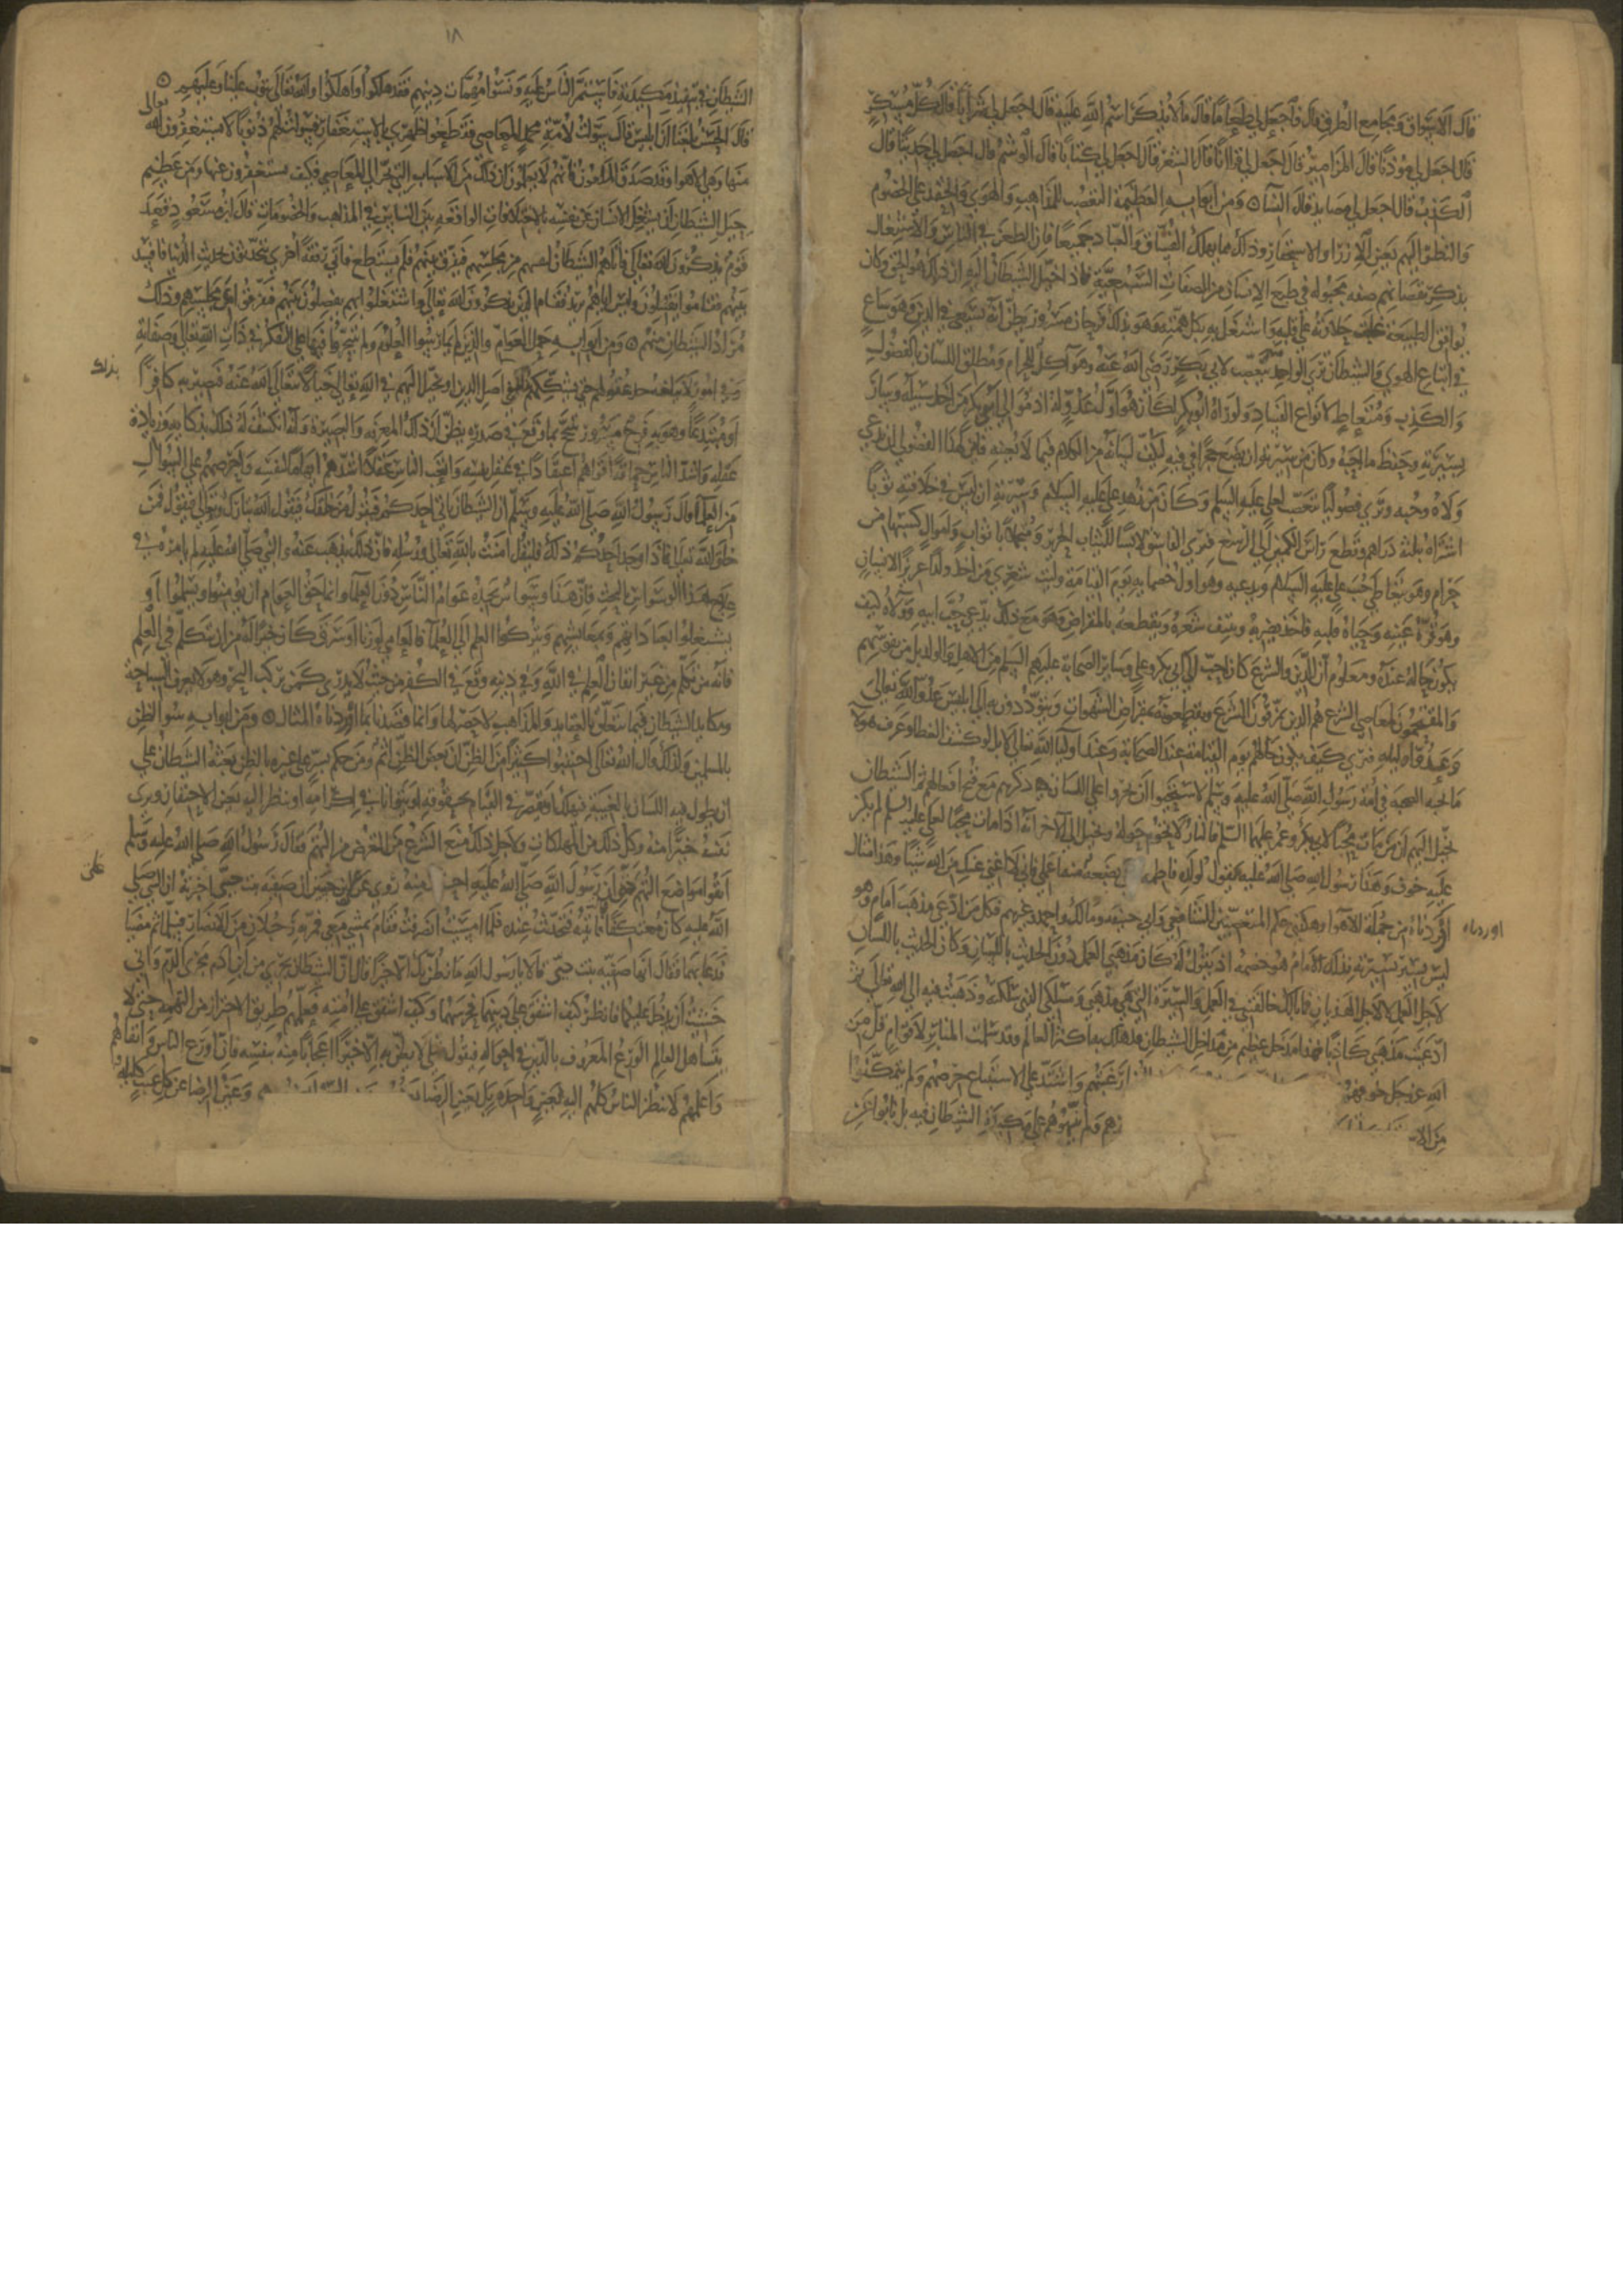 قال الاسواق ومجامع الطرق قال فاجعل لي طعاما قال ما لا يذكر اسم الله عليه قال اجعل لي شرابا قال كل مسكر
قال اجعل لي موذنا قال المزامير قال اجعل لي قرانا قال الشعر قال اجعل لي كتابا قال الوشم قال اجعل لي حديثا قال
الكذب قال اجعل لي مصايد قال النسا ومن ابوابه العظيمة التعصب للمذاهب والهوى والحقد على الخصوم
والنظر اليهم بعين الازرا والاستحقار وذلك مما يهلك الفساق والعباد جميعا فان الطعن في الناس والاشتغال
بذكر نقصانهم صفه مجبوله في طبع الانسان من الصفات السبعية فاذا خيل الشيطان اليه ان ذلك هو الحق وكان
يوافق الطبيعة غلبت حلاوته على قلبه واشتغل به بكل همته وهو بذلك فرحان مسرور يظن انه يسعى في الدين وهو ساع
في اتباع الهوى والشيطان فترى الواحد يتعصب لابي بكر رضي الله عنه وهو آكل للحرام ومطلق اللسان بالفضول
والكذب ومتعاط لانواع الفساد ولو راه ابو بكر لكان هو اول عدو له اذ موالي ابي بكر من اخذ سبيله وسار
بسيرته وحفظ ما بين لحييه وكان من سيرته ان يضع حجرا في فيه ليكف لسانه من الكلام فيما لا يعنيه فانى لهذا الفضولي ان يدعي
ولاه وحبه وترى فضوليا يتعصب لعلي عليه السلم وكان من زهد علي عليه السلام وسيرته ان لبس في خلافته ثوبا
اشتراه بثلثة دراهم وقطع راس الكمين الى الرسغ فترى الفاسق لابسا لثياب الحرير ومتجملا باثواب واموال كسبها من
حرام وهو يتعاطى حب علي عليه السلام ويدعيه وهو اول خصمايه يوم القيامة وليت شعري من اخذ ولدا عزيزا لانسان
وهو قرة عينه وحياة قلبه فاخذ يضربه وينتف شعره ويقطعه بالمقراض وهو مع ذلك يدعي حب ابيه وولاه كيف
يكون حاله عنده ومعلوم ان الدين والشرع كان احب الى ابي بكر وعلي وساير الصحابة عليهم السلم من الاهل والولد بل من نفوسهم
والمقتحمون لمعاصي الشرع هم الذين يمزقون الشرع ويقطعونه بمقراض الشهوات ويتوددون به الى ابليس عدو الله تعالى
وعدو اوليايه فترى كيف يكون حالهم يوم القيامة عند الصحابة وعند اوليا الله تعالى لا بل لو كشف الغطا وعرف هولا
ما تحبه الصحبه في امة رسول الله صلى الله عليه وسلم لاستحيوا ان يجروا على اللسان ذكرهم مع قبح افعالهم ثم الشيطان
يخيل اليهم ان من مات محبا لابي بكر وعمر عليهما السلم فالنار لا تحوم حوله ويخيل الى الاخر انه اذا مات محبا لعلي عليه السلم لم يكن
عليه خوف وهذا رسول الله صلى الله عليه يقول لولده فاطمه بضعة منه اعملي فاني لا اغني عنك من الله شيا وهذا مثال
اوردناه من جملة الاهوا وهكذى حكم المتعصبين للشافعي وابي حنيفه ومالك واحمد وغيرهم فكل من ادعى مذهب امام وهو
ليس يسير بسيرته فذلك الامام هو خصمه اذ يقول له كان مذهبي العمل دون الحديث باللسان وكان الحديث باللسان
لاجل العمل لا لاجل الهذيان فما بالك خالفتني في العمل والسيرة التي هي مذهبي ومسلكي الذي سلكته وذهبت فيه الى الله تعالى ثم
ادعيت مذهبي كاذبا فهذا مدخل عظيم من مداخل الشيطان قد هلك بها اكثر العالم وقد سلمت المنابر لاقوام قل من
الله عز وجل خوفهم رغبتهم واشتد على الاستتباع حرصهم ولم يتمكنوا
من الا
هم ولم ينبهوهم على مكيدة الشيطان فيه بل نابوا عن
اوردناه
١٨
الشيطان في تنفيذ مكيدته فاستمر الناس عليه ونسوا مهمات دينهم فقد هلكوا واهلكوا والله تعالى يتوب علينا وعليهم
قال الحسن بلغنا ان ابليس قال سولت لامة محمد المعاصي فقطعوا ظهري بالاستغفار فسولت لهم ذنوبا لا يستغفرون الله تعالى
منها وهي الاهوا وقد صدق الملعون فانهم لا يعلمون ان ذلك من الاسباب التي تجر الى المعاصي فكيف يستغفرون عنها ومن عظيم
حيل الشيطان ان يشغل الانسان عن نفسه بالاختلافات الواقعه بين الناس في المذاهب والخصومات قال ابن مسعود قعد
قوم يذكرون الله تعالى فاتاهم الشيطان ليقيمهم من مجلسهم فيفرق بينهم فلم يستطع فاتى رفقة اخرى يتحدثون بحديث الدنيا فافسد
بينهم فقاموا يقتتلون وليس اياهم يريد فقام الذين يذكرون الله تعالى واشتغلوا بهم يفصلون بينهم فتفرقوا عن مجلسهم وذلك
مراد الشيطان منهم ومن ابوابه حمل العوام والذين لم يمارسوا العلوم ولم يتبحروا فيها على التفكر في ذات الله تعالى وصفاته
وفي امور لا يبلغها حد عقولهم حتى يشككهم في اصل الدين او يخيل اليهم في الله تعالى خيالا تعالى الله عنه فيصير به كافرا
او مبتدعا وهو به فرح مسرور متبجح بما وقع في صدره يظن ان ذلك المعرفه والبصيرة وانه انكشف له ذلك بذكايه وزيادة
عقله واشد الناس حماقة اقواهم اعتقادا في عقل نفسه واثبت الناس عقلا اشدهم اتهاما لنفسه واحرصهم على السوال
من العلما قال رسول الله صلى الله عليه وسلم ان الشيطان ياتي احدكم فيقول من خلقك فيقول الله تبارك وتعالى فيقول فمن
خلق الله تعالى فاذا وجد احدكم ذلك فليقل امنت بالله تعالى ورسله فان ذلك يذهب عنه والنبي صلى الله عليه لم يامره في
علاج هذا الوسواس بالبحث فان هذا وسواس يجده عوام الناس دون العلما وانما حق العوام ان يومنوا ويسلموا او
يشتغلوا بعباداتهم ومعايشهم ويتركوا العلم الى العلما فالعامي لو زنا او سرق كان خيرا له من ان يتكلم في العلم
فانه من تكلم من غير اتقان العلم في الله وفي دينه وقع في الكفر من حيث لا يدري كمن يركب البحر وهو لا يعرف السباحة
ومكايد الشيطان فيما يتعلق بالعقايد والمذاهب لا حصر لها وانما قصدنا بما اوردناه المثال ومن ابوابه سو الظن
بالمسلمين ولذلك قال الله تعالى اجتنبوا كثيرا من الظن ان بعض الظن اثم ومن حكم بشر على غيره بالظن بعثه الشيطان على
ان يطول فيه اللسان بالغيبة فيهلك او يقصر في القيام بحقوقه او يتوانا في اكرامه او ينظر اليه بعين الاحتقار ويرى
نفسه خيرا منه وكل ذلك من المهلكات ولاجل ذلك منع الشرع من التعرض من التهم وقال رسول الله صلى الله عليه وسلم
اتقوا مواضع التهم حتى ان رسول الله صلى الله عليه احترز عنه روي عن علي بن حسين ان صفيه بنت حيي اخبرته ان النبي صلى
الله عليه كان معتكفا فاتيته فتحدثت عنده فلما امسيت انصرفت فقام يمشي معي فمر به رجلان من الانصار فسلما ثم مضيا
فدعا بهما فقال انها صفيه بنت حيي قالا يا رسول الله ما نظن بك الا خيرا قال ان الشيطان يجري من ابن ادم مجرى الدم واني
خشيت ان يدخل عليكما فانظر كيف اشفق على دينهما فحرسهما وكيف اشفق على امته فعلمهم طريق الاحتراز من التهمه حتى لا
يتساهل العالم الورع المعروف بالدين في احواله فيقول مثلي لا يظن به الا خيرا اعجابا منه بنفسه فان اورع الناس واتقاهم
واعلمهم لا ينظر الناس كلهم اليه بعين واحدة بل بعين الرضا وعين الرضا عن كل عيب كليله
بذلك
على